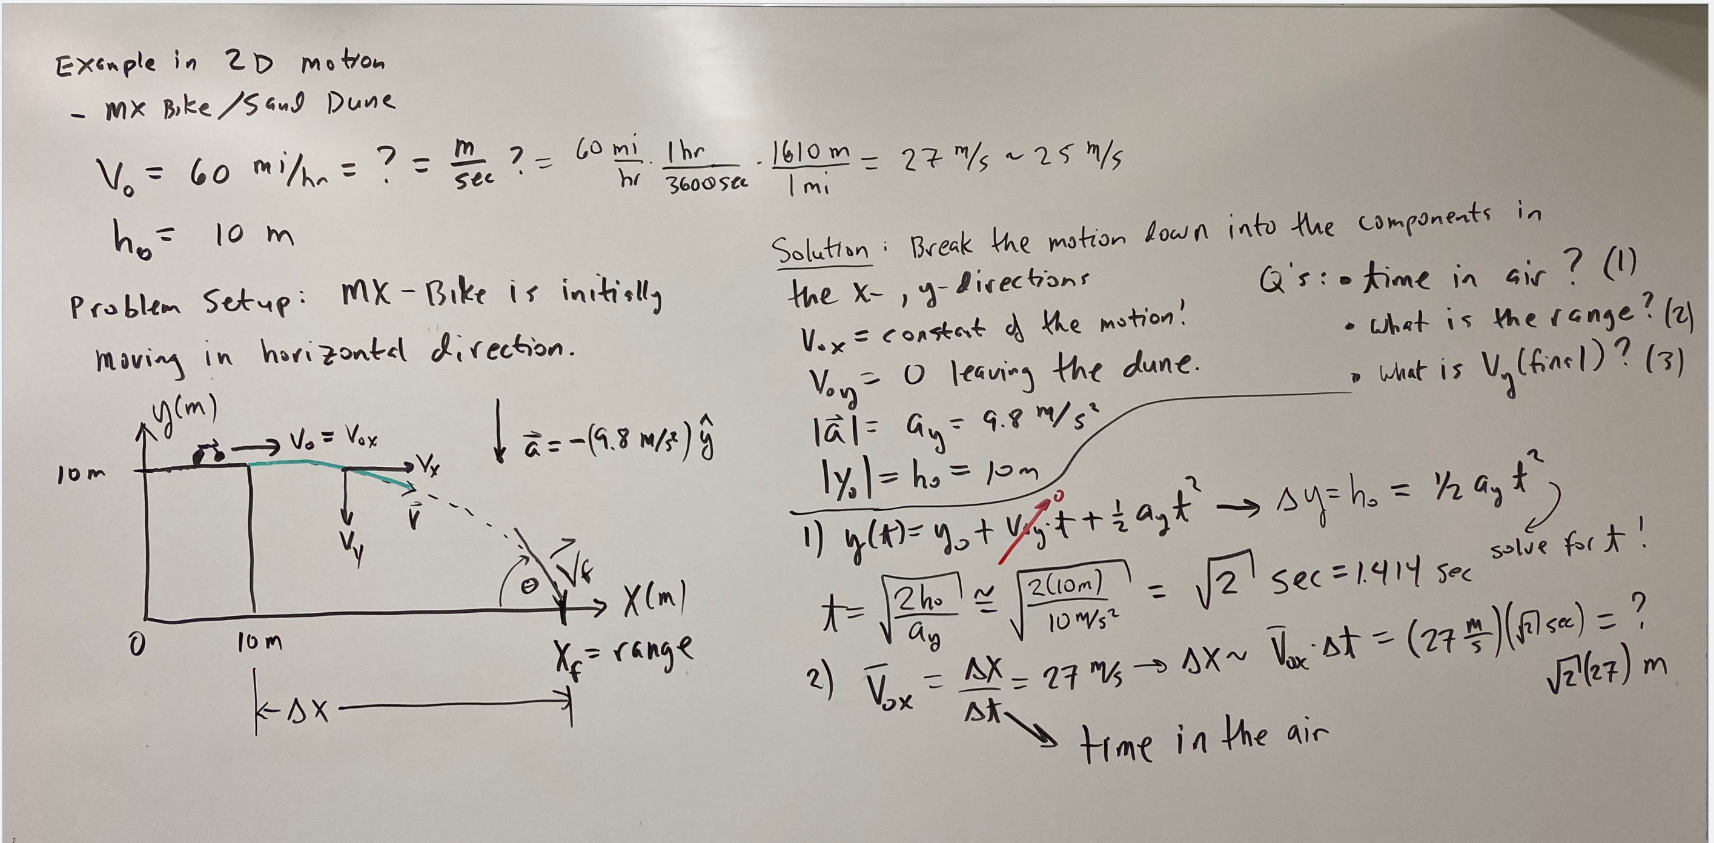 Example in 2D motion
- MX Bike/Sand Dune
V₀ = 60 mi/hr = ? = m/sec ? = 60 mi/hr · 1hr/3600sec · 1610 m/1 mi = 27 m/s ~ 25 m/s
h₀ = 10 m
Problem Setup: MX-Bike is initially
moving in horizontal direction.
y(m)
10m
V₀ = V₀ₓ
Vₓ
V⃗
V_y
a⃗ = -(9.8 m/s²) ŷ
θ
V⃗f
X(m)
0
10m
X_f = range
ΔX
Solution: Break the motion down into the components in
the x-, y-directions
V₀ₓ = constant of the motion!
V₀y = 0 leaving the dune.
|a⃗| = a_y = 9.8 m/s²
|y₀| = h₀ = 10m
Q's: • time in air? (1)
• what is the range? (2)
• what is V_y(final)? (3)
1) y(t) = y₀ + V₀y·t + ½ a_y t² → Δy = h₀ = 1/2 a_y t²
0
solve for t!
t = √(2h₀/a_y) ≅ √(2(10m)/10 m/s²) = √2 sec = 1.414 sec
2) V̄₀ₓ = ΔX/Δt = 27 m/s → ΔX ~ V̄₀ₓ·Δt = (27 m/s)(√2 sec) = ?
√2(27) m
time in the air